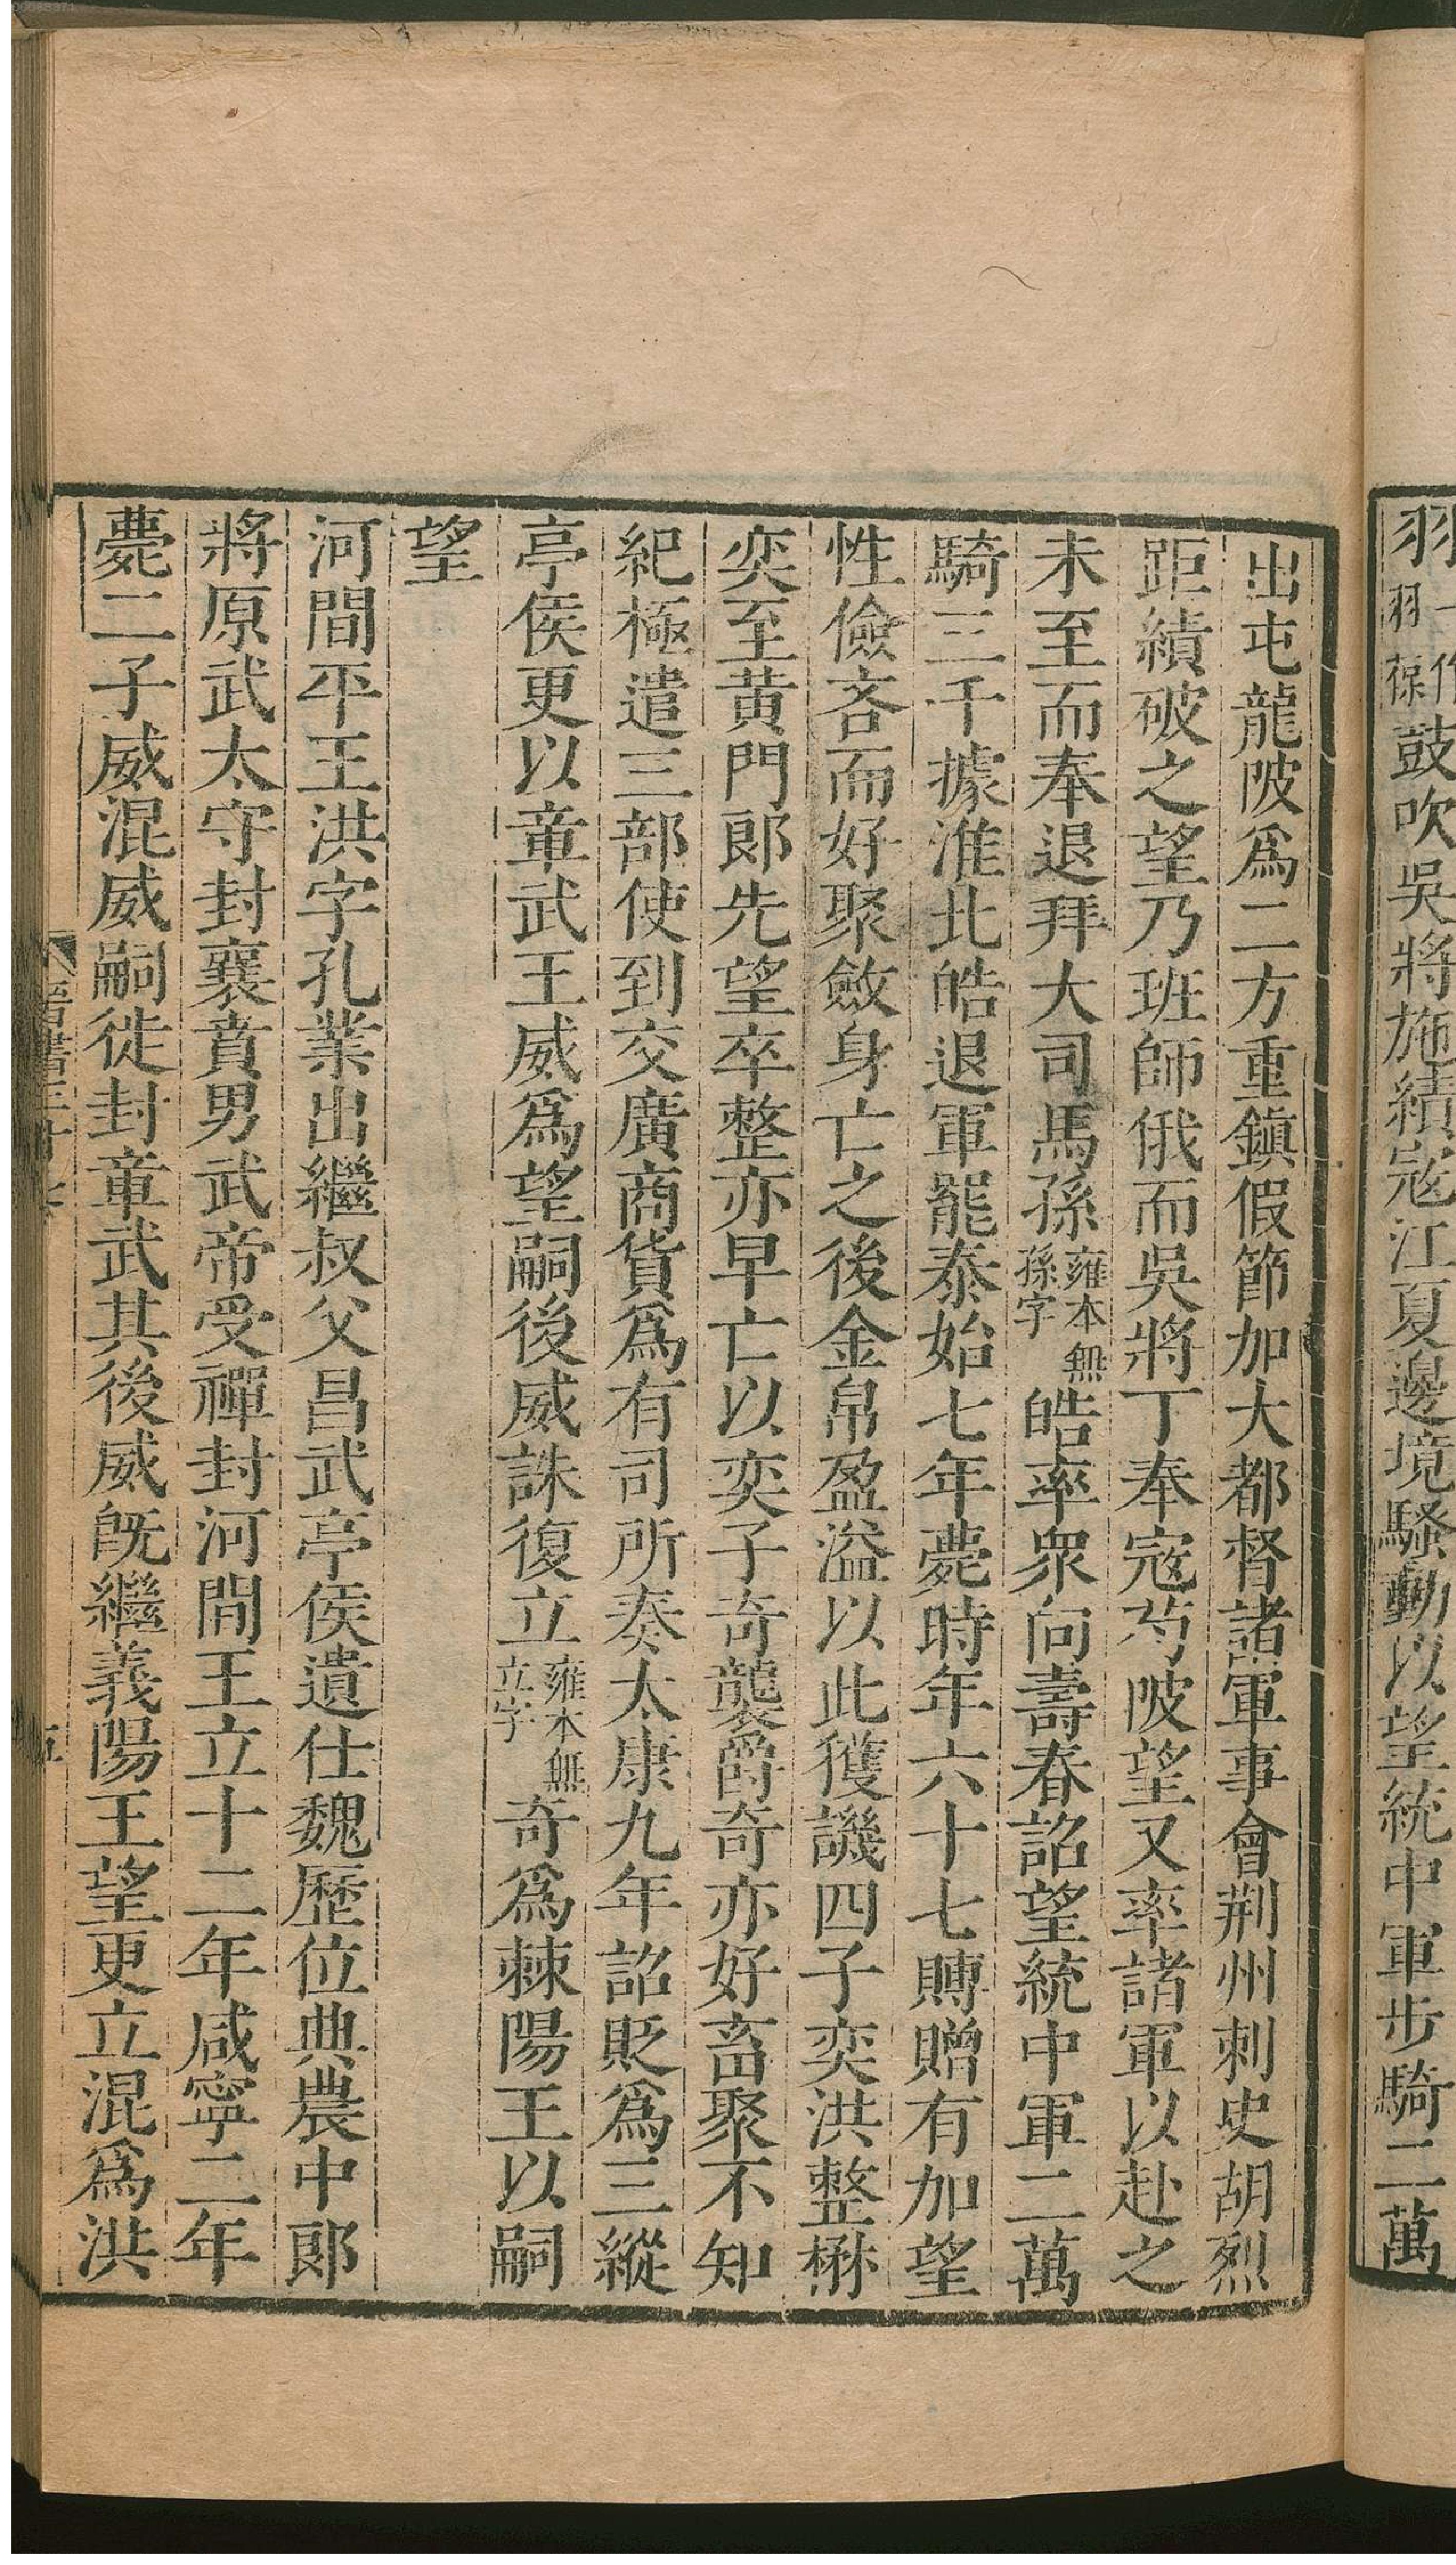 羽一作羽葆鼓吹吳將施績寇江夏邊境騷動以望統中軍步騎二萬
出屯龍陂爲二方重鎮假節加大都督諸軍事會荆州刺史胡烈
距績破之望乃班師俄而吳將丁奉寇芍陂望又率諸軍以赴之
未至而奉退拜大司馬孫雍本無孫字皓率衆向壽春詔望統中軍二萬
騎三千據淮北皓退軍罷泰始七年薨時年六十七賻贈有加望
性儉吝而好聚斂身亡之後金帛盈溢以此獲譏四子奕洪整楙
奕至黃門郎先望卒整亦早亡以奕子奇襲爵奇亦好畜聚不知
紀極遣三部使到交廣商貨爲有司所奏太康九年詔貶爲三縱
亭侯更以章武王威爲望嗣後威誅復立雍本無立字奇爲棘陽王以嗣
望
河間平王洪字孔業出繼叔父昌武亭侯遺仕魏歷位典農中郎
將原武太守封襄賁男武帝受禪封河間王立十二年咸寧二年
薨二子威混威嗣徙封章武其後威旣繼義陽王望更立混爲洪
00088371